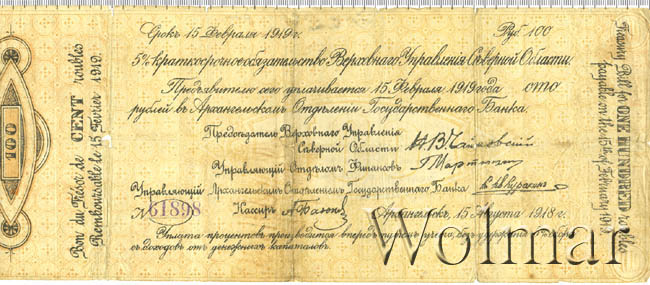 Срокъ 15 Февраля 1919 г.
Руб 100
5% краткосрочное обязательство Верховнаго Управленія Сѣверной Области.
Предъявителю сего уплачивается 15 Февраля 1919 года сто
рублей въ Архангельскомъ Отдѣленіи Государственнаго Банка.
Предсѣдатель Верховнаго Управленія
Сѣверной Области
Управляющій Отдѣломъ Финансовъ
Управляющій Архангельскимъ Отдѣленіемъ Государственнаго Банка
№ 61898
Кассиръ
Архангельскъ, 15 Августа 1918 г.
Уплата процентовъ производится впередъ путемъ учета, безъ удержанія % сбора
съ доходовъ отъ денежныхъ капиталовъ.
100
Bon du Trésor de CENT roubles
Remboursable le 15 Février 1919.
Treasury Bill for ONE HUNDRED roubles
payable on the 15th of February 1919
Wolmar